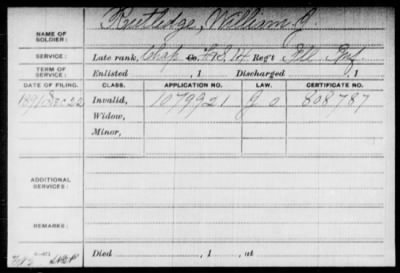 NAME OF SOLDIER: Rutledge, William J.
SERVICE: Late rank, Chap Co. F&S, 14 Reg't Ill Inf
TERM OF SERVICE: Enlisted , 1 Discharged , 1
DATE OF FILING. CLASS. APPLICATION NO. LAW. CERTIFICATE NO.
1891 Dec 22 Invalid, 1079921 G 808787
Widow,
Minor,
ADDITIONAL SERVICES:
REMARKS:
Died , 1 , at